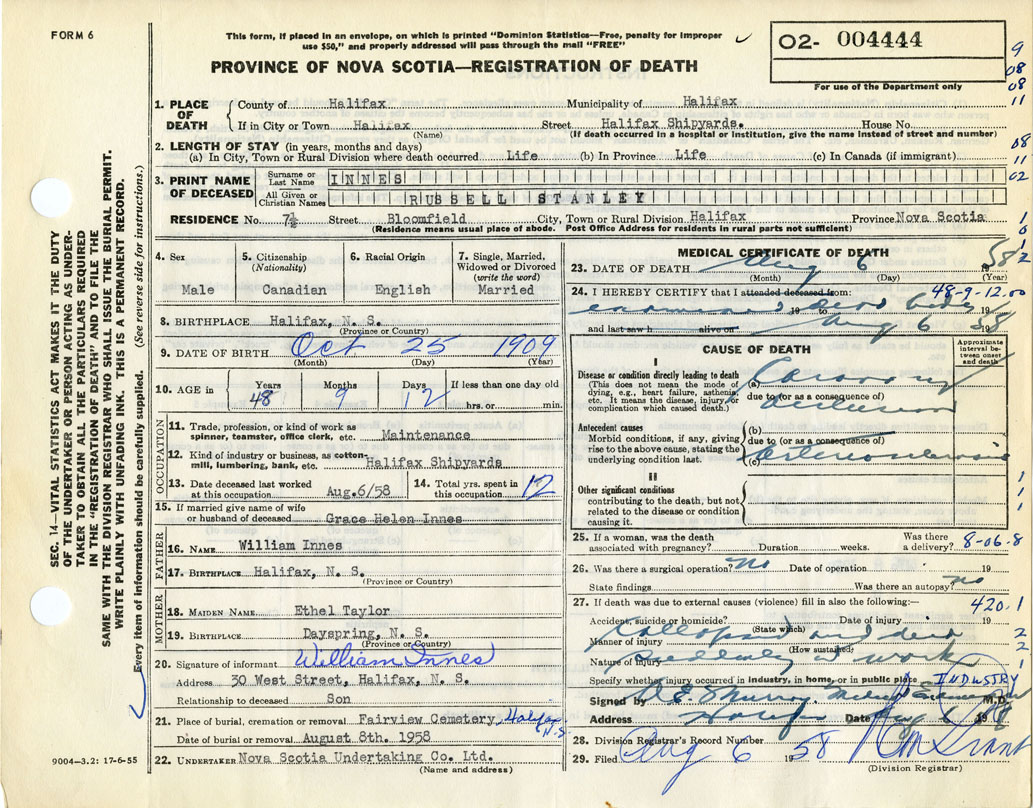 FORM 6
This form, if placed in an envelope, on which is printed "Dominion Statistics—Free, penalty for improper
use $50," and properly addressed will pass through the mail "FREE"
02- 004444
For use of the Department only
PROVINCE OF NOVA SCOTIA—REGISTRATION OF DEATH
9
08
08
11
08
11
02
1. PLACE OF DEATH
County of Halifax Municipality of Halifax
If in City or Town Halifax Street Halifax Shipyards. House No.
(Name) (If death occurred in a hospital or institution, give the name instead of street and number)
2. LENGTH OF STAY (in years, months and days)
(a) In City, Town or Rural Division where death occurred Life (b) In Province Life (c) In Canada (if immigrant)
3. PRINT NAME OF DECEASED
Surname or Last Name INNES
All Given or Christian Names RUSSELL STANLEY
RESIDENCE No. 7½ Street Bloomfield City, Town or Rural Division Halifax Province Nova Scotia
(Residence means usual place of abode. Post Office Address for residents in rural parts not sufficient)
4. Sex
Male
5. Citizenship
(Nationality)
Canadian
6. Racial Origin
English
7. Single, Married,
Widowed or Divorced
(write the word)
Married
8. BIRTHPLACE Halifax, N. S.
(Province or Country)
9. DATE OF BIRTH Oct 25 1909
(Month) (Day) (Year)
10. AGE in Years Months Days If less than one day old
48 9 12 hrs. or min.
OCCUPATION
11. Trade, profession, or kind of work as
spinner, teamster, office clerk, etc. Maintenance
12. Kind of industry or business, as cotton-
mill, lumbering, bank, etc. Halifax Shipyards
13. Date deceased last worked
at this occupation Aug.6/58
14. Total yrs. spent in
this occupation 12
15. If married give name of wife
or husband of deceased Grace Helen Innes
FATHER
16. NAME William Innes
17. BIRTHPLACE Halifax, N. S.
(Province or Country)
MOTHER
18. MAIDEN NAME Ethel Taylor
19. BIRTHPLACE Dayspring, N. S.
(Province or Country)
20. Signature of informant William Innes
Address 30 West Street, Halifax, N. S.
Relationship to deceased Son
21. Place of burial, cremation or removal Fairview Cemetery, Halifax N.S.
Date of burial or removal August 8th. 1958
22. UNDERTAKER Nova Scotia Undertaking Co. Ltd.
(Name and address)
MEDICAL CERTIFICATE OF DEATH
23. DATE OF DEATH Aug 6 1958
(Month) (Day) (Year)
24. I HEREBY CERTIFY that I attended deceased from: 48-9-12.00
examined dead body
19 to 19
and last saw h alive on Aug 6 1958
CAUSE OF DEATH
Approximate
interval be-
tween onset
and death
I
Disease or condition directly leading to death
(This does not mean the mode of
dying, e.g., heart failure, asthenia,
etc. It means the disease, injury or
complication which caused death.)
(a) Coronary
due to (or as a consequence of)
occlusion
Antecedent causes
Morbid conditions, if any, giving
rise to the above cause, stating the
underlying condition last.
(b)
due to (or as a consequence of)
(c) arteriosclerosis
II
Other significant conditions
contributing to the death, but not
related to the disease or condition
causing it.
25. If a woman, was the death
associated with pregnancy? Duration weeks.
Was there
a delivery? 8-06.8
26. Was there a surgical operation? no Date of operation 19
State findings Was there an autopsy? no
27. If death was due to external causes (violence) fill in also the following:— 420.1
Accident, suicide or homicide? Date of injury 19
(State which)
Collapsed and died
Manner of injury
(How sustained)
Nature of injury suddenly at work
Specify whether injury occurred in industry, in home, or in public place INDUSTRY
Signed by Murray Medical M.D.
Address Halifax Date Aug 6 1958
28. Division Registrar's Record Number
29. Filed Aug 6 1958
(Division Registrar)
SEC. 14—VITAL STATISTICS ACT MAKES IT THE DUTY
OF THE UNDERTAKER OR PERSON ACTING AS UNDER-
TAKER TO OBTAIN ALL THE PARTICULARS REQUIRED
IN THE "REGISTRATION OF DEATH" AND TO FILE THE
SAME WITH THE DIVISION REGISTRAR WHO SHALL ISSUE THE BURIAL PERMIT.
WRITE PLAINLY WITH UNFADING INK. THIS IS A PERMANENT RECORD.
Every item of information should be carefully supplied. (See reverse side for instructions.)
9004—3.2: 17-6-55